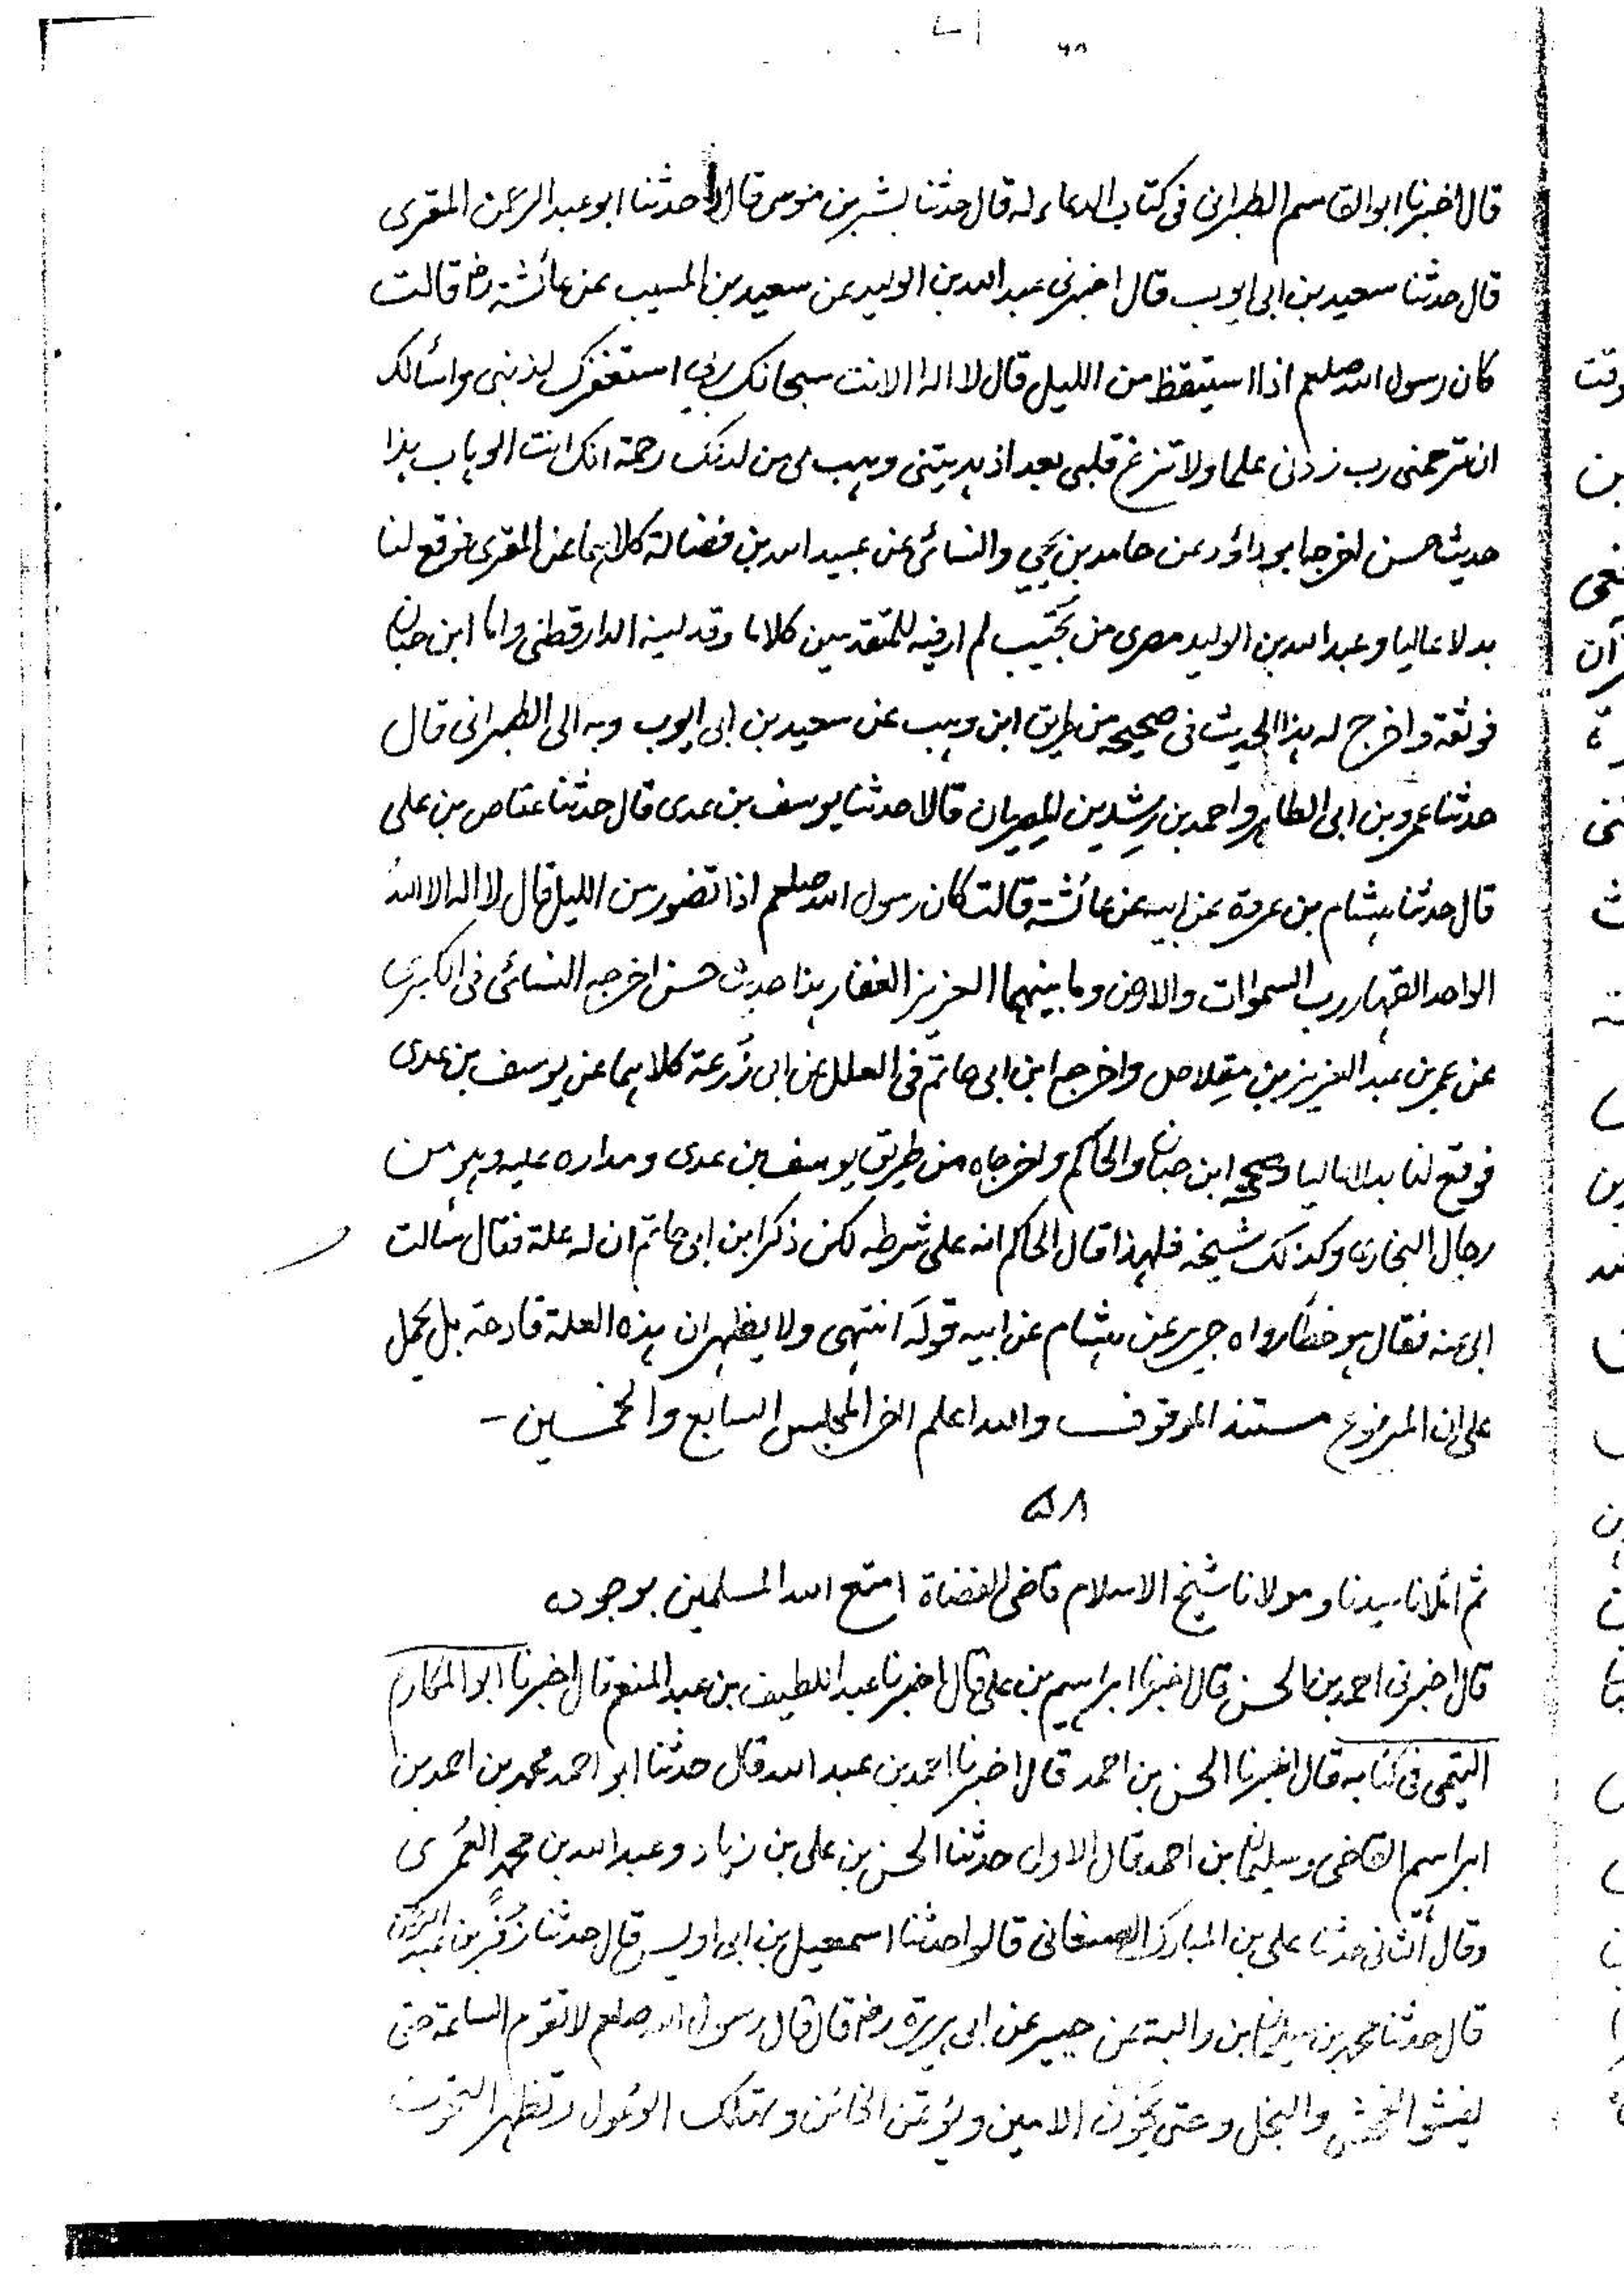 قال اخبرنا ابوالقاسم الطبرانی فی کتاب الدعاء له قال حدثنا بشر بن موسی قال حدثنا ابو عبد الرحمن المقری
قال حدثنا سعید بن ابی ایوب قال اخبرنی عبد الله بن الولید عن سعید بن المسیب عن عائشة رض قالت
کان رسول الله صلعم اذا استیقظ من اللیل قال لا اله الا انت سبحانک ربی استغفرک لذنبی واسألک
ان ترحمنی رب زدنی علما ولا تزغ قلبی بعد اذ هدیتنی وهب لی من لدنک رحمة انک انت الوهاب هذا
حدیث حسن اخرجه ابو داؤد عن حامد بن یحیی والنسائی عن عبید الله بن فضالة کلاهما عن المقری فوقع لنا
بدلا عالیا و عبد الله بن الولید مصری من تجیب لم ار فیه للمتقدمین کلاما وقد لینه الدارقطنی واما ابن حبان
فوثقه واخرج له هذا الحدیث فی صحیحه من طریق ابن وهب عن سعید بن ابی ایوب وبه الی الطبرانی قال
حدثنا عمرو بن ابی الطاهر واحمد بن رشدین المصریان قالا حدثنا یوسف بن عدی قال حدثنا عثام بن علی
قال حدثنا هشام بن عروة عن ابیه عن عائشة قالت کان رسول الله صلعم اذا تضور من اللیل قال لا اله الا الله
الواحد القهار رب السموات والارض وما بینهما العزیز الغفار هذا حدیث حسن اخرجه النسائی فی الکبری
عن عمر بن عبد العزیز بن مقلاص واخرجه ابن ابی حاتم فی العلل عن ابی زرعة کلاهما عن یوسف بن عدی
فوقع لنا بدلا عالیا وصححه ابن حبان والحاکم واخرجاه من طریق یوسف بن عدی ومداره علیه وهو من
رجال البخاری وکذلک شیخه فلهذا قال الحاکم انه علی شرطه لکن ذکر ابن ابی حاتم ان له علة فقال سألت
ابی عنه فقال هو خطأ رواه جریر عن هشام عن ابیه قوله انتهی ولا یظهر ان هذه العلة قادحة بل یحمل
علی ان المرفوع مستند الموقوف والله اعلم اخر المجلس السابع والخمسین -
۵۸
ثم املانا سیدنا ومولانا شیخ الاسلام قاضی القضاة امتع الله المسلمین بوجوده
قال اخبرنی احمد بن الحسن قال اخبرنا ابراهیم بن علی قال اخبرنا عبد اللطیف بن عبد المنعم قال اخبرنا ابو المکارم
التیمی فی کتابه قال اخبرنا الحسن بن احمد قال اخبرنا احمد بن عبد الله قال حدثنا ابو احمد محمد بن احمد بن
ابراهیم القاضی وسلیمان بن احمد قال الاول حدثنا الحسن بن علی بن زیاد وعبد الله بن محمد العُمَری
وقال الثانی حدثنا علی بن المبارک الصنعانی قالوا حدثنا اسمعیل بن ابی اویس قال حدثنا زفر بن عبد الرحمن
قال حدثنا محمد بن سلیمان بن والبة عن جبیر عن ابی هریرة رض قال قال رسول الله صلعم لا تقوم الساعة حتی
یفشو الفحش والبخل وحتی یخون الامین ویؤتمن الخائن وتهلک الوعول وتظهر التحوت